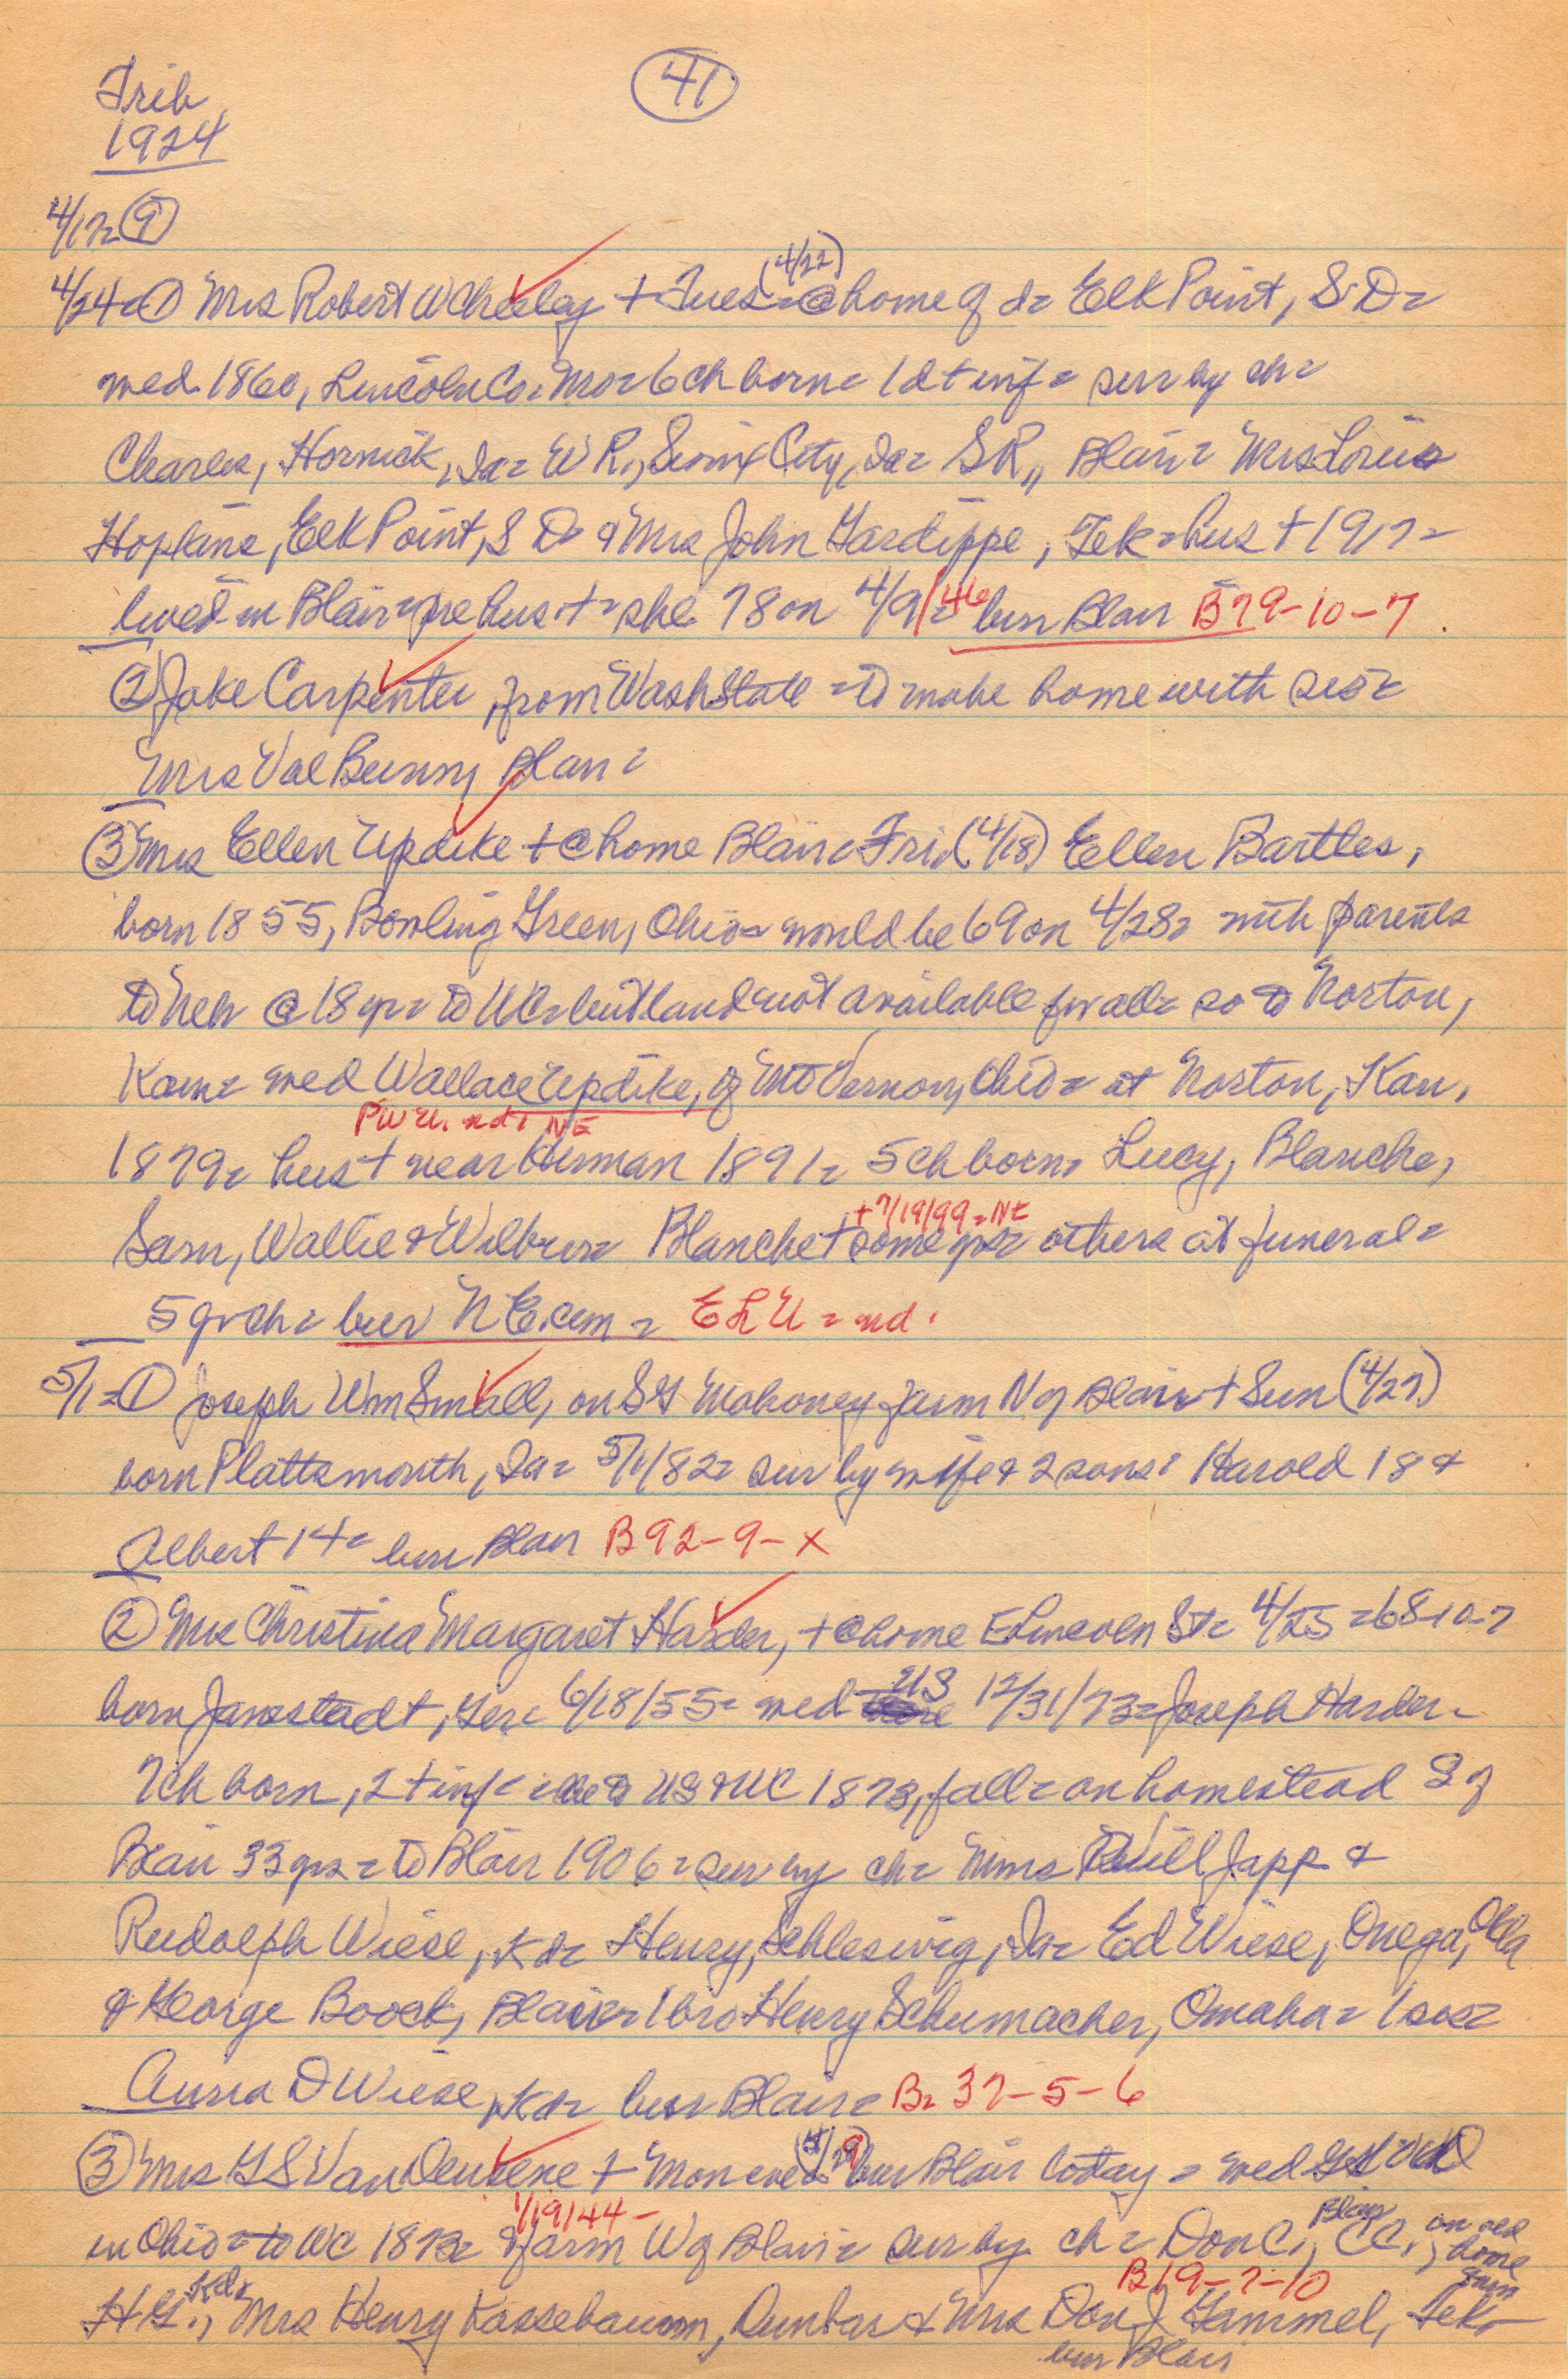 Trib
(41)
1924
4/17= (9)
4/24= (1) Mrs Robert W Cheeley + Tues= (4/22) @ home of d= Elk Point, S.D=
med. 1860, Lincoln Co= Mo= 6 ch born= 1 d + inf= sur by ch=
Charles, Hornick, Ia= W R., Sioux City, Ia= S R,, Blair= Mrs Louis
Hopkins, Elk Point, S D= & Mrs John Gardippe, Tek= hus + 1917=
lived in Blair pre hus += she 78 on 4/9/46= bur Blair B79-10-7
(2) Jake Carpenter, from Wash State = to make home with sis=
Mrs Val Bunn, Blair=
(3) Mrs Ellen Updike + @ home Blair= Fri, (4/18) Ellen Bartles,
born 1855, Bowling Green, Ohio= would be 69 on 4/28= with parents
to Neb @ 18 yr= to WC= but land not available for all= so to Norton,
Kan= med Wallace Updike, of Mt Vernon, Ohio= at Norton, Kan,
PWU. nd= NE
1879= hus + near Herman 1891= 5 ch born= Lucy, Blanche,
+ 7/19/99 = NE
Sam, Wallie & Wilbur= Blanche + some yrs= others at funeral=
5 gr ch= bur N E. cem = E L U = nd.
5/1= (1) Joseph Wm Small, on S G Mahoney farm N of Blair + Sun (4/27)
born Plattsmouth, Ia= 5/1/82= sur by wife & 2 sons: Harold 18 &
Albert 14= bur Blair B 92-9-X
(2) Mrs Christina Margaret Harder, + @ home E Lincoln St= 4/25 = 68-10-7
born Janstadt, Ger= 6/18/55= med US 12/31/73= Joseph Harder=
7 ch born, 2 + inf= to US & WC 1873, fall= on homestead S of
Blair 33 yrs = to Blair 1906= sur by ch= Mmes Will Japp &
Rudolph Wiese, Kd= Henry, Schleswig, Ia= Ed Wiese, Onega, Okla
& George Boock, Blair= 1 bro Henry Schumacher, Omaha= 1 sis=
Anna D Wiese, Kd= bur Blair= B= 37-5-6
(3) Mrs G S Van Deusene + Mon eve= bur Blair today = med G S V D
1/19/44 -
in Ohio= to WC 1873= farm W of Blair= sur by ch= Don C., Blair, CC., on old home farm
B19-7-10
H G., Kd= Mrs Henry Kassebaum, Dunbar & Mrs Don J Gammel, Tek=
bur Blair